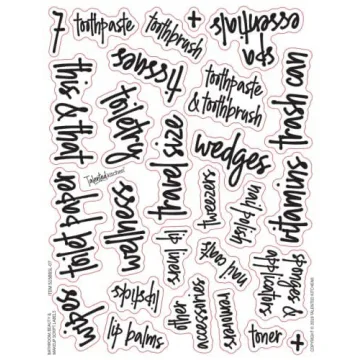 7
toothpaste
toothbrush
+
spa
essentials
tissues
this & that
toothpaste
& toothbrush
trash can
travel size
wedges
Talented
KITCHEN
toilet paper
wellness
tweezers
nail polish
vitamins
lip liners
nail care
sponges &
applicators
wipes
lipsticks
lip balms
other
accessories
removers
toner
+
ITEM
BATHROOM, BEAUTY &
MAKEUP SCRIPT LABELS
COPYRIGHT © 2019 TALENTED KITCHEN